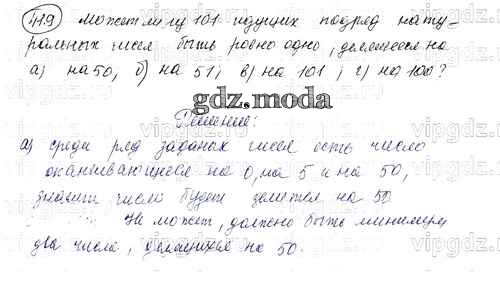 419 Может ли у 101 идущих подряд нату-
ральных чисел быть ровно одно, делящееся на
а) на 50; б) на 51; в) на 101; г) на 100?
gdz.moda
Решение:
а) среди ряд заданых чисел есть число
оканчивающееся на 0, на 5 и на 50,
значит число будет делится на 50
Не может, должно быть минимум
два числа, делящихся на 50.